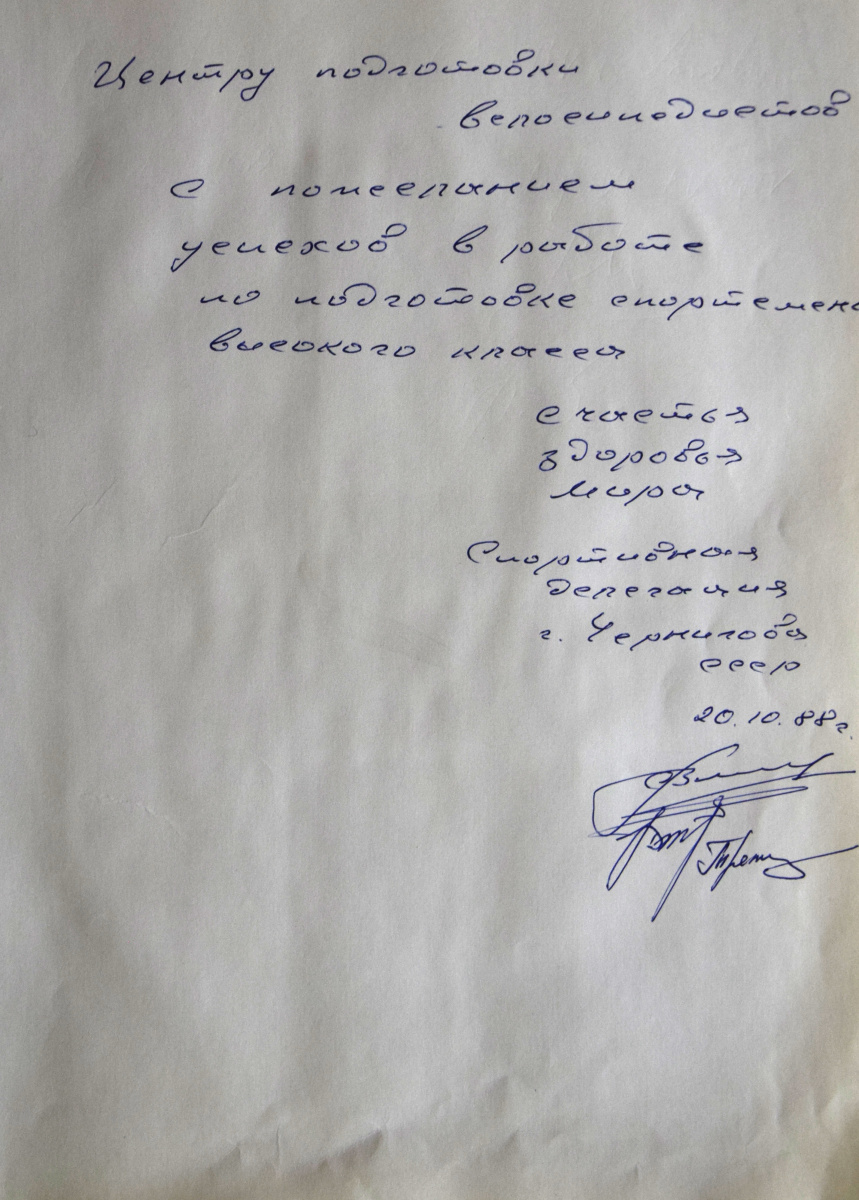 Центру подготовки
велосипедистов
С пожеланием
успехов в работе
по подготовке спортсмено
высокого класса
счастья
здоровья
мира
Спортивная
делегация
г. Чернигова
СССР
20.10.88г.